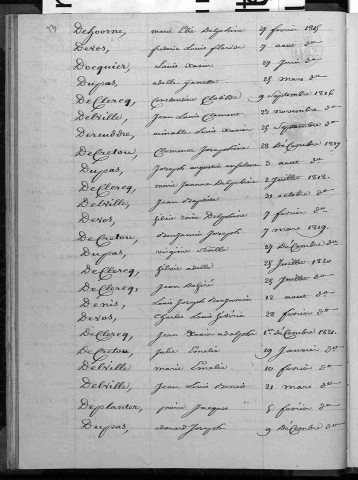 Degoorne, marie Elie Delphine 29 fevrier 1815
Devos, frederic Louis florise 7 aout do
Docquier, Louis Xavier 27 Juin do
Dupas, adelle ganette 25 mars do
DeClercq, Constantine Clotilde 9 Septembre 1816
Delville, Jean Louis Clement 23 novembre do
Dereuddre, aimable Louis Xavier 25 Septembre do
DeCretou, Clemence Josephine 28 DeCembre 1817
Dupas, Joseph augustin anselme 3 aout do
DeClercq, marie Jeanne Delphine 2 Juillet 1818.
Delville, Jean Baptiste 31 octobre do
Devos, Silvie reine Delphine 7 fevrier do
DeCretou, Benjamin Joseph 7 mars 1819.
Dupas, virginie 29 DeCembre do
DeClercq, Silvie adelle 25 Juillet 1820
DeClercq, Jean Desiré 25 Juillet do
Denis, Louis Joseph Benjamin 12 aout do
Devos, Charles Louis Sévérin 28 fevrier do
DeClercq, Jean Xavier adolphe 1er deCembre 1821.
DeCretou, Julie Emelie 19 Janvier do
Delville marie Emelie 10 fevrier do
Delville, Jean Louis 21 mars do
Deplanter, pierre Jacques 5 fevrier do
Dupas, edouard Joseph 9 DeCembre do